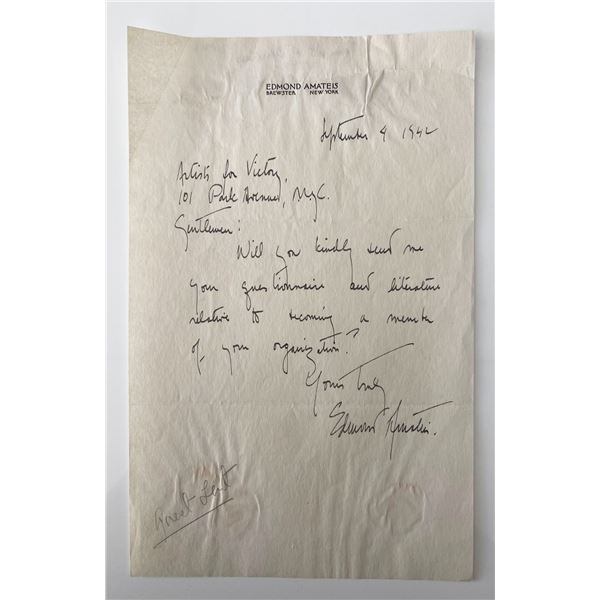 EDMOND AMATEIS
BREWSTER NEW YORK
September 9 1942
Artists for Victory,
101 Park Avenue, N.Y.C.
Gentlemen:
Will you kindly send me
your questionnaire and literature
relative to becoming a member
of your organization?
Yours truly
Edmond Amateis.
Quest Sent